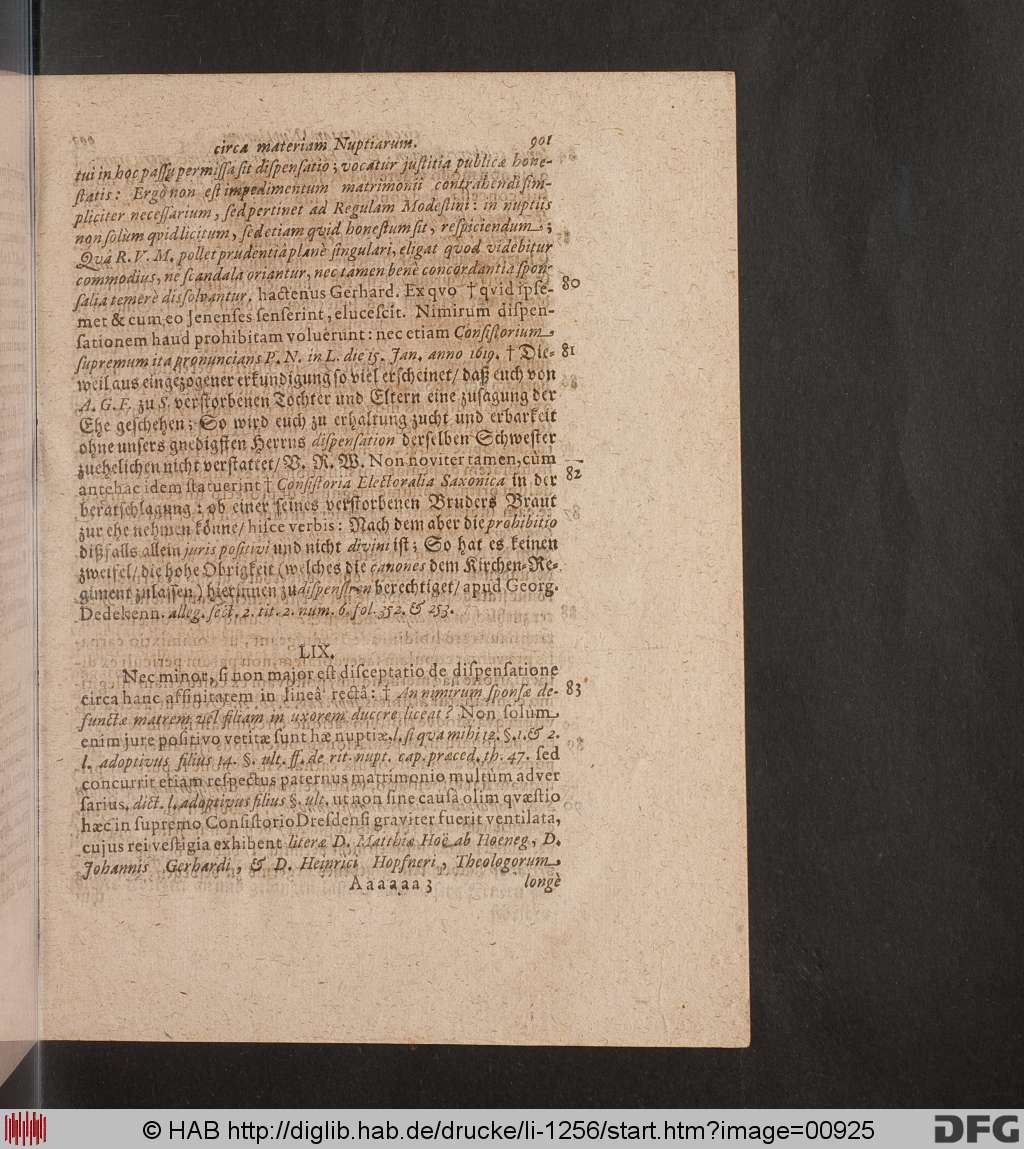 circa materiam Nuptiarum. 901
tui in hoc passu permissa sit dispensatio; vocatur justitia publicæ hone-
statis: Ergò non est impedimentum matrimonii contrahendi sim-
pliciter necessarium, sed pertinet ad Regulam Modestini: in nuptiis
non solùm qvid licitum, sed etiam qvid honestum sit, respiciendum;
Qvâ R. V. M. pollet prudentiâ planè singulari, eligat qvod videbitur
commodius, ne scandala oriantur, nec tamen benè concordantia spon-
salia temerè dissolvantur, hactenus Gerhard. Ex qvo † qvid ipse- 80
met & cum eo Jenenses senserint, elucescit. Nimirum dispen-
sationem haud prohibitam voluerunt: nec etiam Consistorium
supremum ita pronuncians P. N. in L. die 15. Jan. anno 1619. † Die- 81
weil aus eingezogener erkundigung so viel erscheinet/ daß euch von
A. G. F. zu S. verstorbenen Tochter und Eltern eine zusagung der
Ehe geschehen; So wird euch zu erhaltung zucht und erbarkeit
ohne unsers gnedigsten Herrns dispensation derselben Schwester
zuehelichen nicht verstattet/ V. R. W. Non noviter tamen, cùm
antehac idem statuerint † Consistoria Electoralia Saxonica in der 82
beratschlagung: ob einer seines verstorbenen Bruders Braut
zur ehe nehmen könne/ hisce verbis: Nach dem aber die prohibitio
dißfalls allein juris positivi und nicht divini ist; So hat es keinen
zweifel/ die hohe Obrigkeit (welches die canones dem Kirchen-Re-
giment zulassen) hierinnen zu dispensiren berechtiget/ apud Georg.
Dedekenn. alleg. sect. 2. tit. 2. num. 6. fol. 352. & 253.
LIX.
Nec minor, si non major est disceptatio de dispensatione
circa hanc affinitatem in lineâ rectâ: † An nimirum sponsæ de- 83
functæ matrem vel filiam in uxorem ducere liceat? Non solùm
enim jure positivo vetitæ sunt hæ nuptiæ, l. si qva mihi 12. §. 1. & 2.
l. adoptivus filius 14. §. ult. ff. de rit. nupt. cap. præced. th. 47. sed
concurrit etiam respectus paternus matrimonio multùm adver
sarius, dict. l. adoptivus filius §. ult. ut non sine causa olim qvæstio
hæc in supremo Consistorio Dresdensi graviter fuerit ventilata,
cujus rei vestigia exhibent literæ D. Matthiæ Hoë ab Hoeneg, D.
Johannis Gerhardi, & D. Heinrici Hopfneri, Theologorum
Aaaaaa 3 longè
© HAB http://diglib.hab.de/drucke/li-1256/start.htm?image=00925
DFG